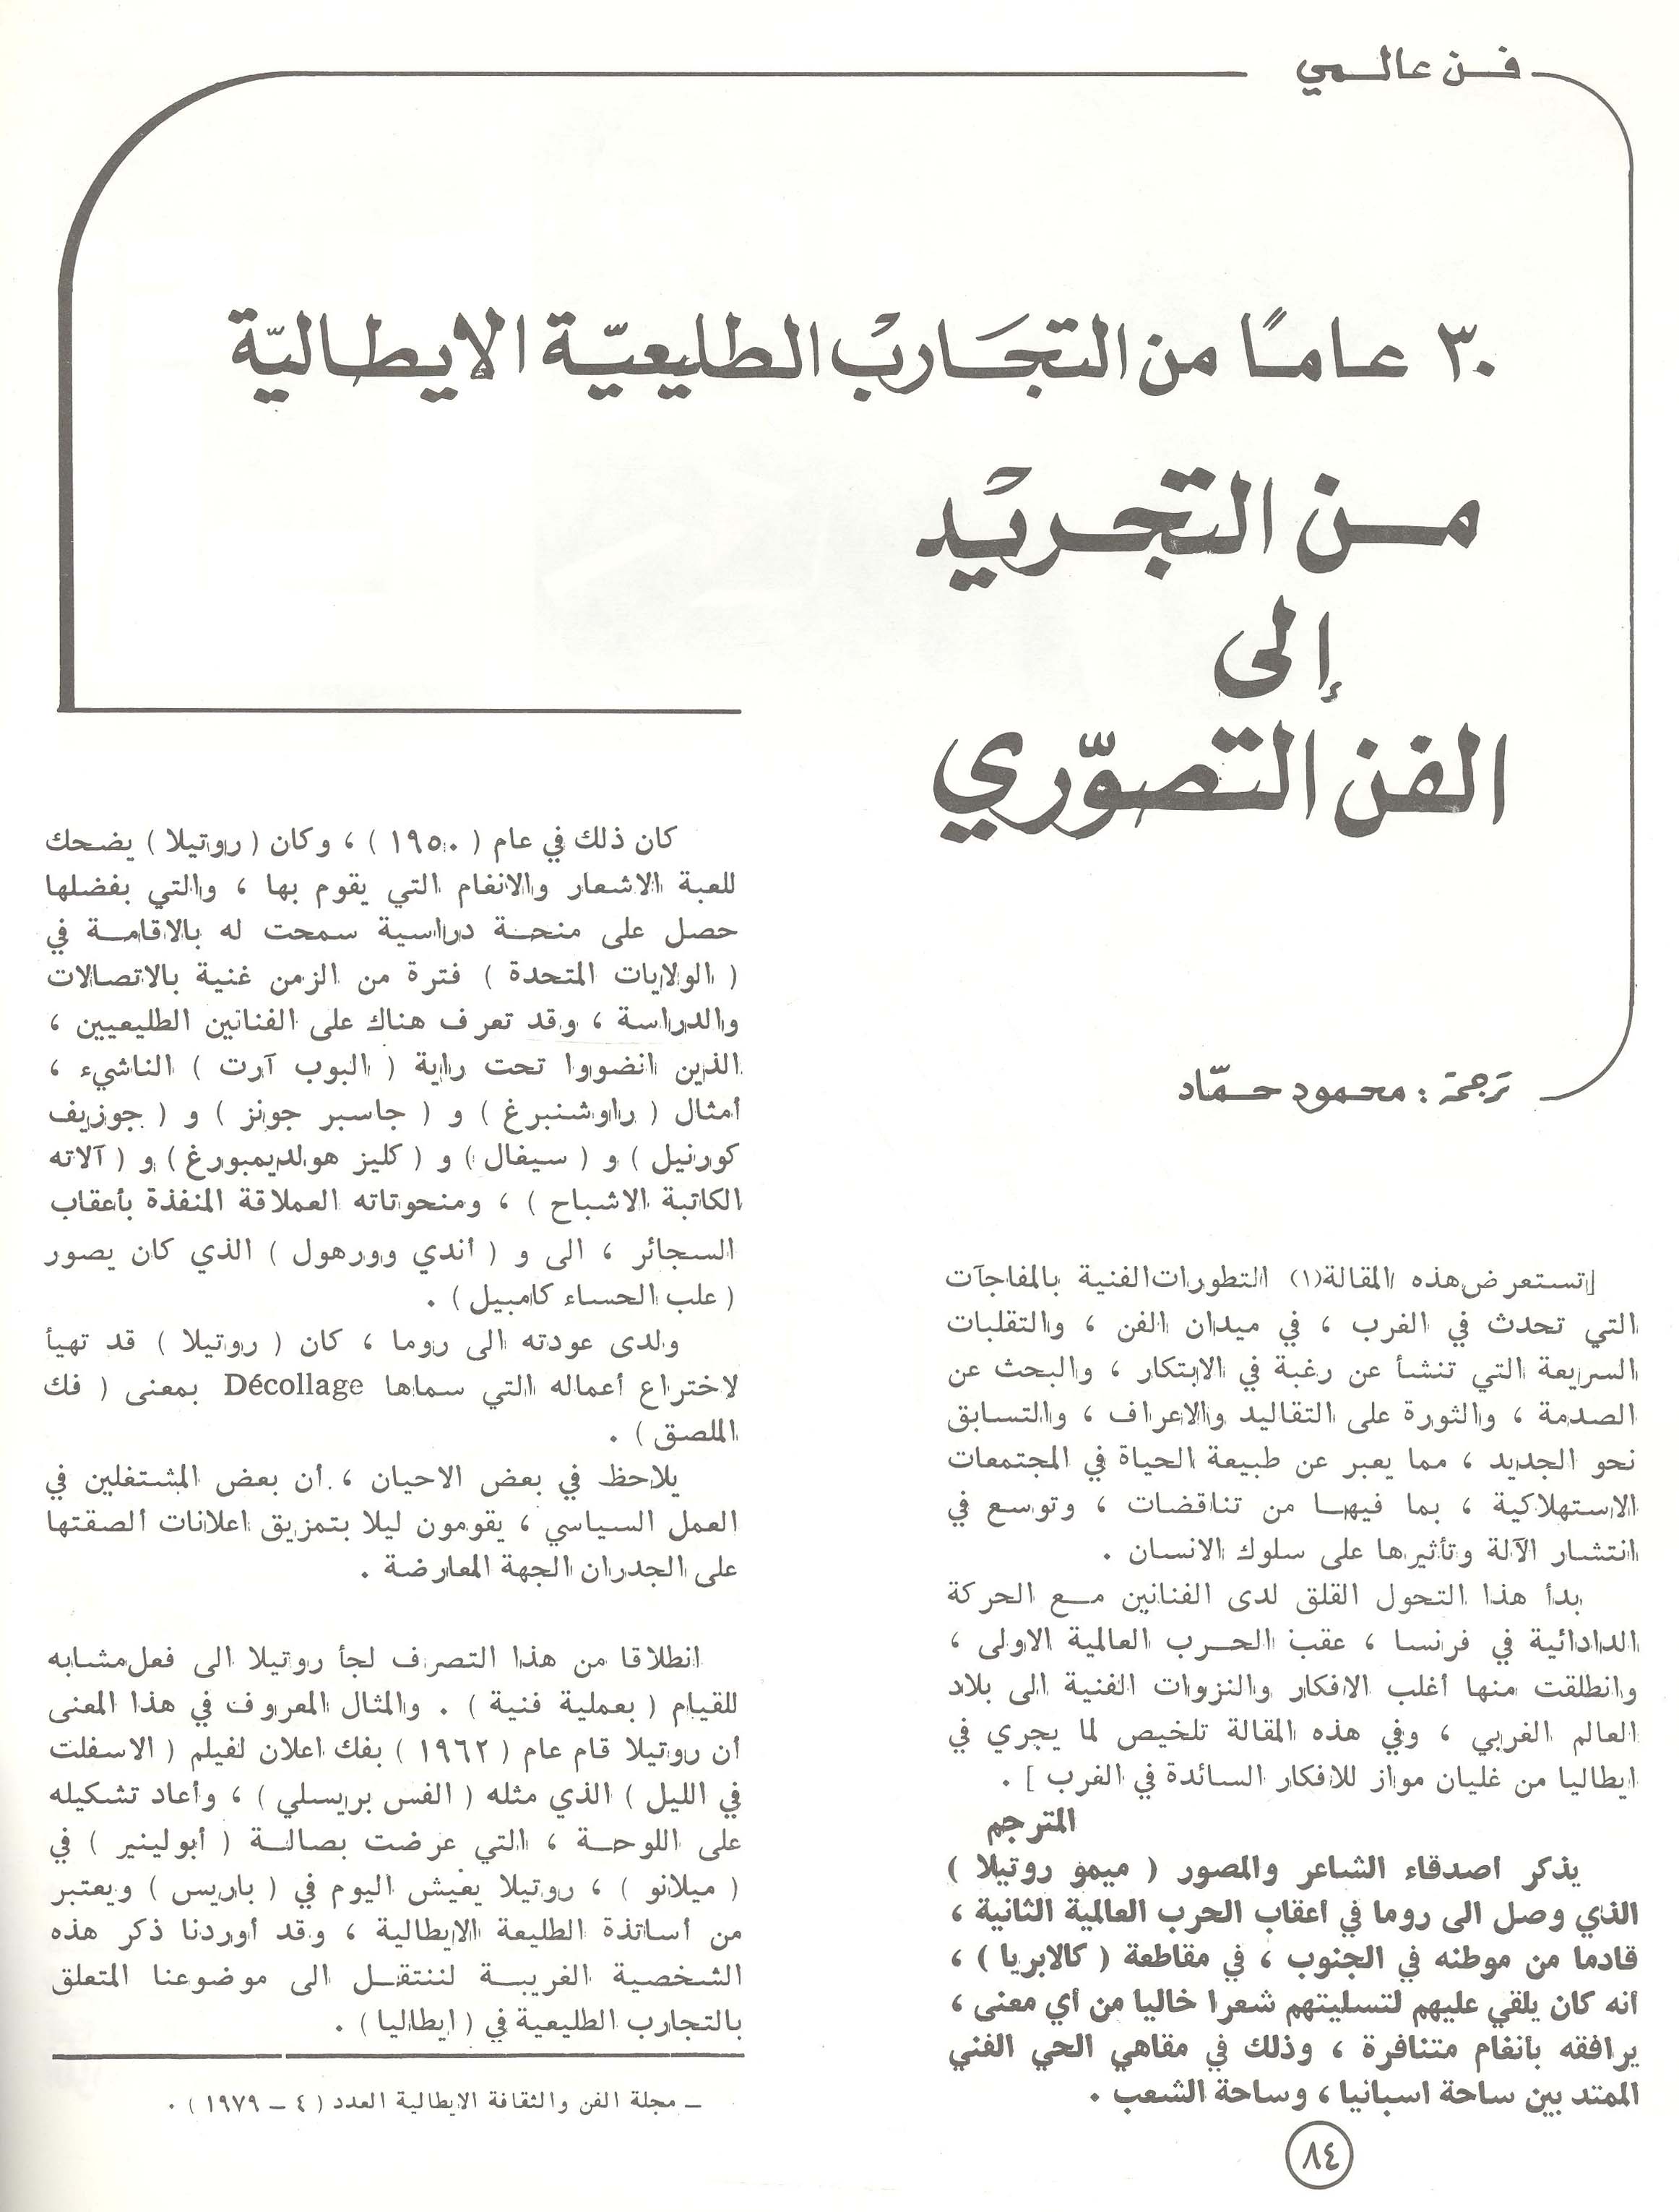 فن عالمي
٣٠ عامًا من التجَاربْ الطليعيّة الإيطاليّة
من التجريْد
إلى
الفن التصوّري
ترجمة : محمود حمّاد
[تستعرض هذه المقالة(١) التطورات الفنية بالمفاجآت
التي تحدث في الغرب ، في ميدان الفن ، والتقلبات
السريعة التي تنشأ عن رغبة في الابتكار ، والبحث عن
الصدمة ، والثورة على التقاليد والاعراف ، والتسابق
نحو الجديد ، مما يعبر عن طبيعة الحياة في المجتمعات
الاستهلاكية ، بما فيها من تناقضات ، وتوسع في
انتشار الآلة وتأثيرها على سلوك الانسان .
بدأ هذا التحول القلق لدى الفنانين مع الحركة
الدادائية في فرنسا ، عقب الحرب العالمية الاولى ،
وانطلقت منها أغلب الافكار والنزوات الفنية الى بلاد
العالم الغربي ، وفي هذه المقالة تلخيص لما يجري في
ايطاليا من غليان مواز للافكار السائدة في الغرب ] .
المترجم
يذكر اصدقاء الشاعر والمصور ( ميمو روتيلا )
الذي وصل الى روما في اعقاب الحرب العالمية الثانية ،
قادما من موطنه في الجنوب ، في مقاطعة ( كالابريا ) ،
أنه كان يلقي عليهم لتسليتهم شعرا خاليا من أي معنى ،
يرافقه بأنغام متنافرة ، وذلك في مقاهي الحي الفني
الممتد بين ساحة اسبانيا ، وساحة الشعب .
كان ذلك في عام ( ١٩٥٠ ) ، وكان ( روتيلا ) يضحك
للعبة الاشعار والانغام التي يقوم بها ، والتي بفضلها
حصل على منحة دراسية سمحت له بالاقامة في
( الولايات المتحدة ) فترة من الزمن غنية بالاتصالات
والدراسة ، وقد تعرف هناك على الفنانين الطليعيين ،
الذين انضووا تحت راية ( البوب آرت ) الناشيء ،
أمثال ( راوشنبرغ ) و ( جاسبر جونز ) و ( جوزيف
كورنيل ) و ( سيفال ) و ( كليز هولديمبورغ ) و ( آلاته
الكاتبة الاشباح ) ، ومنحوتاته العملاقة المنفذة بأعقاب
السجائر ، الى و ( أندي وورهول ) الذي كان يصور
( علب الحساء كامبيل ) .
ولدى عودته الى روما ، كان ( روتيلا ) قد تهيأ
لاختراع أعماله التي سماها Décollage بمعنى ( فك
الملصق ) .
يلاحظ في بعض الاحيان ، أن بعض المشتغلين في
العمل السياسي ، يقومون ليلا بتمزيق اعلانات ألصقتها
على الجدران الجهة المعارضة .
انطلاقا من هذا التصرف لجأ روتيلا الى فعل مشابه
للقيام ( بعملية فنية ) . والمثال المعروف في هذا المعنى
أن روتيلا قام عام ( ١٩٦٢ ) بفك اعلان لفيلم ( الاسفلت
في الليل ) الذي مثله ( الفس بريسلي ) ، وأعاد تشكيله
على اللوحة ، التي عرضت بصالة ( أبولينير ) في
( ميلانو ) ، روتيلا يعيش اليوم في ( باريس ) ويعتبر
من أساتذة الطليعة الايطالية ، وقد أوردنا ذكر هذه
الشخصية الغريبة لننتقل الى موضوعنا المتعلق
بالتجارب الطليعية في ( ايطاليا ) .
ــ مجلة الفن والثقافة الايطالية العدد ( ٤ ــ ١٩٧٩ ) .
٨٤